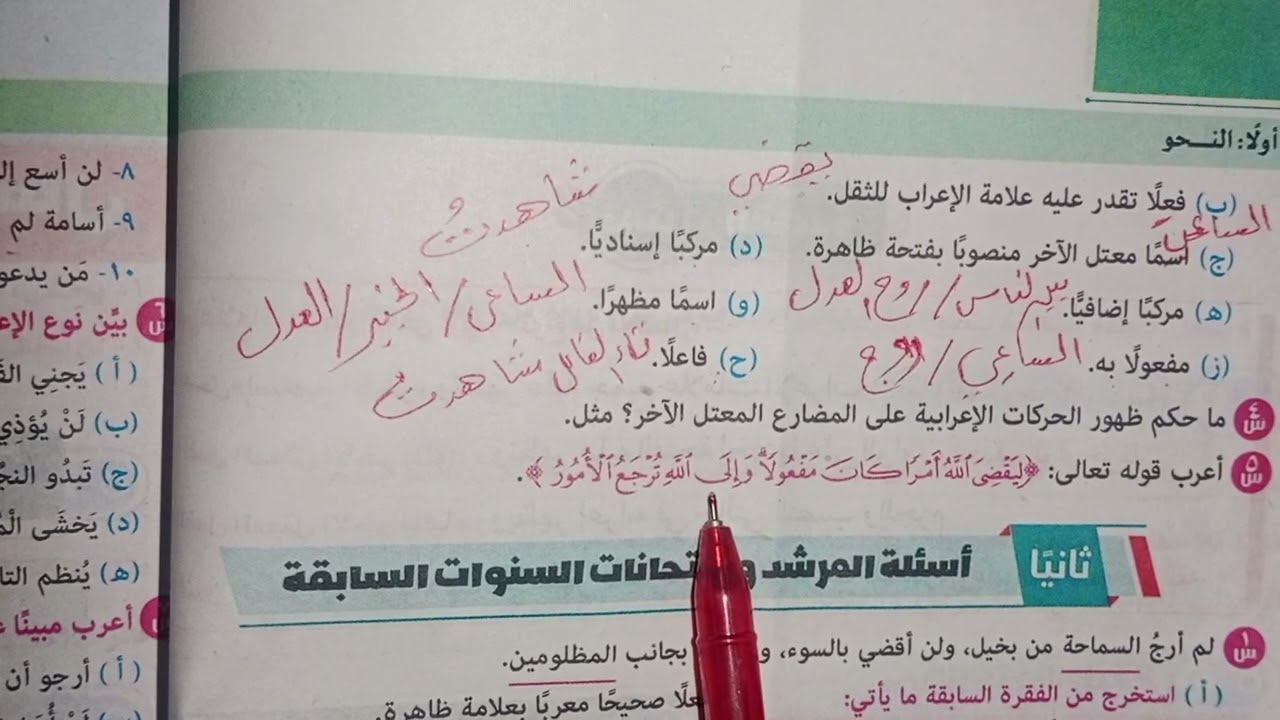 أولًا: النحو
(ب) فعلًا تقدر عليه علامة الإعراب للثقل. يقضي
(ج) اسمًا معتل الآخر منصوبًا بفتحة ظاهرة. الساعي
(د) مركبًا إسناديًّا. شاهدتُ
(ه) مركبًا إضافيًّا. بين الناس / روح العدل
(و) اسمًا مظهرًا. الساعي / الخير / العدل
(ز) مفعولًا به. الساعي / روح
(ح) فاعلًا. تاء الفاعل شاهدت
س٤ ما حكم ظهور الحركات الإعرابية على المضارع المعتل الآخر؟ مثل.
س٥ أعرب قوله تعالى: ﴿لِيَقْضِيَ ٱللَّهُ أَمْرًا كَانَ مَفْعُولًا ۗ وَإِلَى ٱللَّهِ تُرْجَعُ ٱلْأُمُورُ﴾.
ثانيًا
أسئلة المرشد
السنوات السابقة
س١ لم أرجُ السماحة من بخيل، ولن أقضي بالسوء، بجانب المظلومين.
(أ) استخرج من الفقرة السابقة ما يأتي:
صحيحًا معربًا بعلامة ظاهرة.
٨- لن أسع
٩- أسامة لم
١٠- مَن يدعو
س٦ بيِّن نوع
(أ) يَجنِي
(ب) لَنْ يُؤذِي
(ج) تَبدُو
(د) يَخشَى
(ه) يُنظم
أعرب مبينًا
(أ) أرجو أن